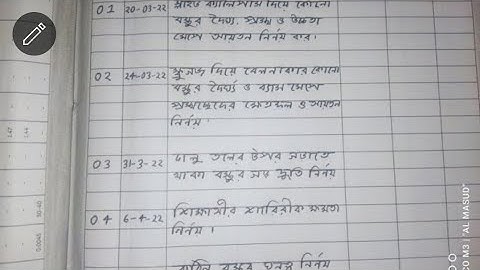 01 20-03-22 স্লাইড ক্যালিপার্স দিয়ে কোনো
বস্তুর দৈর্ঘ্য, প্রস্থ ও উচ্চতা
মেপে আয়তন নির্নয় কর।
02 24-03-22 স্ক্রুগজ দিয়ে বেলনাকার কোনো
বস্তুর দৈর্ঘ্য ও ব্যাস মেপে
প্রস্থচ্ছেদের ক্ষেত্রফল ও আয়তন
নির্নয়।
03 31-3-22 ঢালু তলের উপর গড়াতে
থাকা বস্তুর গড় দ্রুতি নির্নয়
04 6-4-22 শিক্ষার্থীর শারিরীক ক্ষমতা
নির্নয়।
বস্তুর ঘনত্ব নির্নয়
CO M3 | AL MASUD